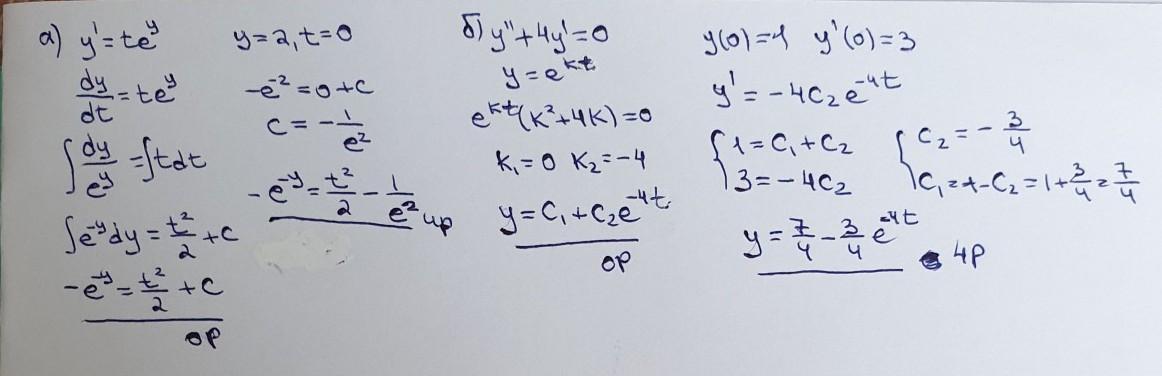 а) y' = te^y
dy/dt = te^y
∫ dy/e^y = ∫ t dt
∫ e^-y dy = t²/2 + C
-e^-y = t²/2 + C
ОР
y = 2, t = 0
-e^-2 = 0 + C
C = - 1/e²
-e^-y = t²/2 - 1/e² ЧР
б) y'' + 4y' = 0
y = e^kt
e^kt (k² + 4k) = 0
k₁ = 0 k₂ = -4
y = C₁ + C₂e^-4t.
ОР
y(0) = 1 y'(0) = 3
y' = -4C₂e^-4t
{ 1 = C₁ + C₂
3 = -4C₂
{ C₂ = - 3/4
C₁ = 1 - C₂ = 1 + 3/4 = 7/4
y = 7/4 - 3/4 e^-4t
ЧР